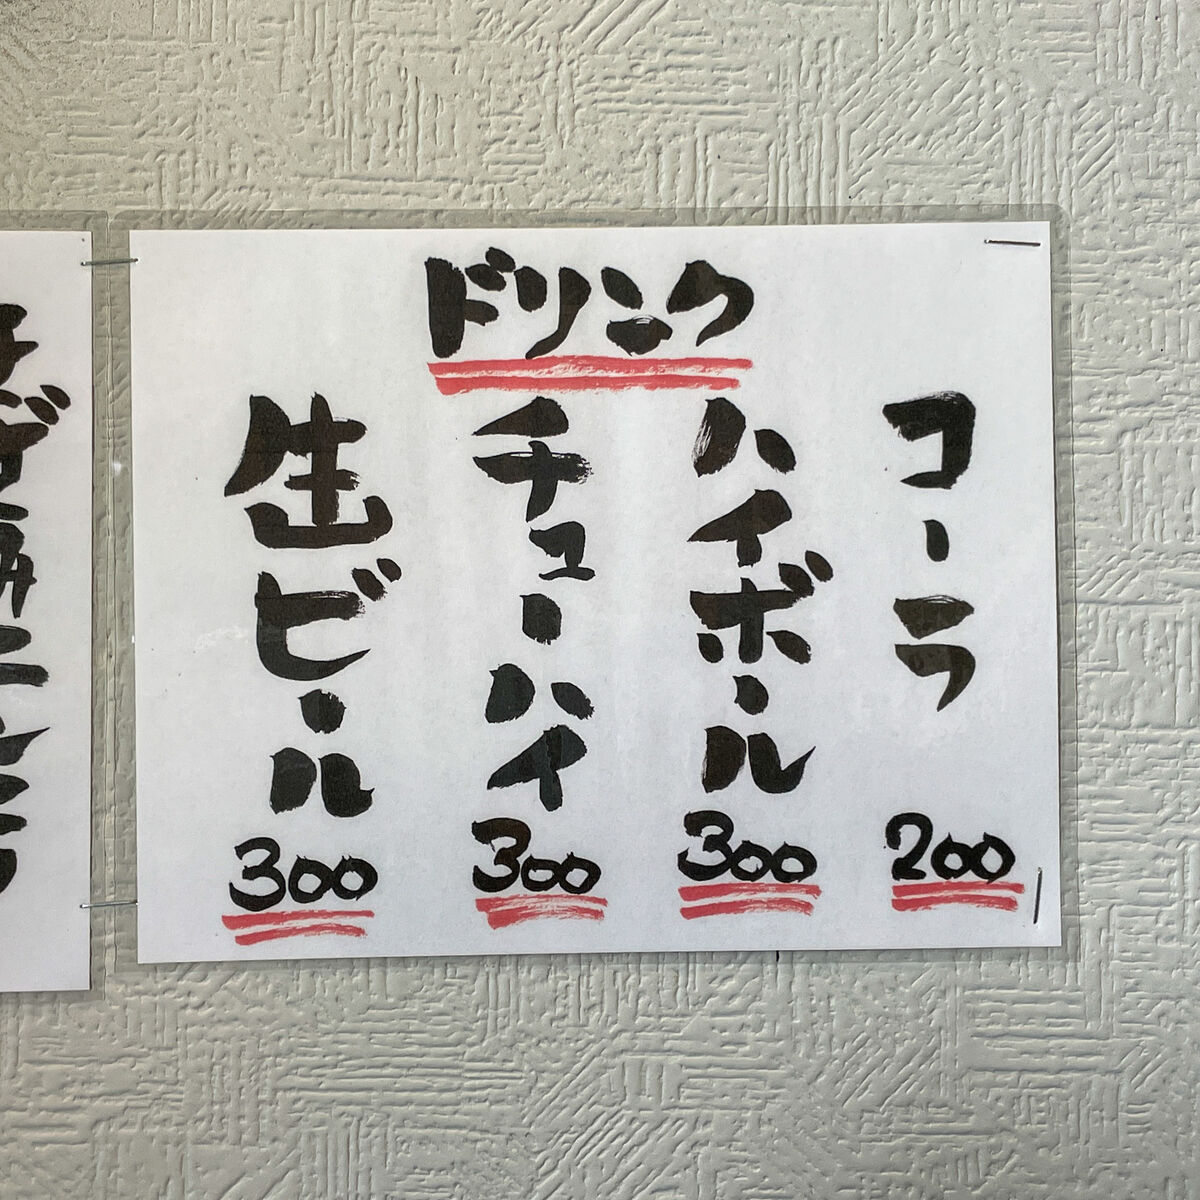 ドリンク
コーラ
200
ハイボール
300
チューハイ
300
生ビール
300